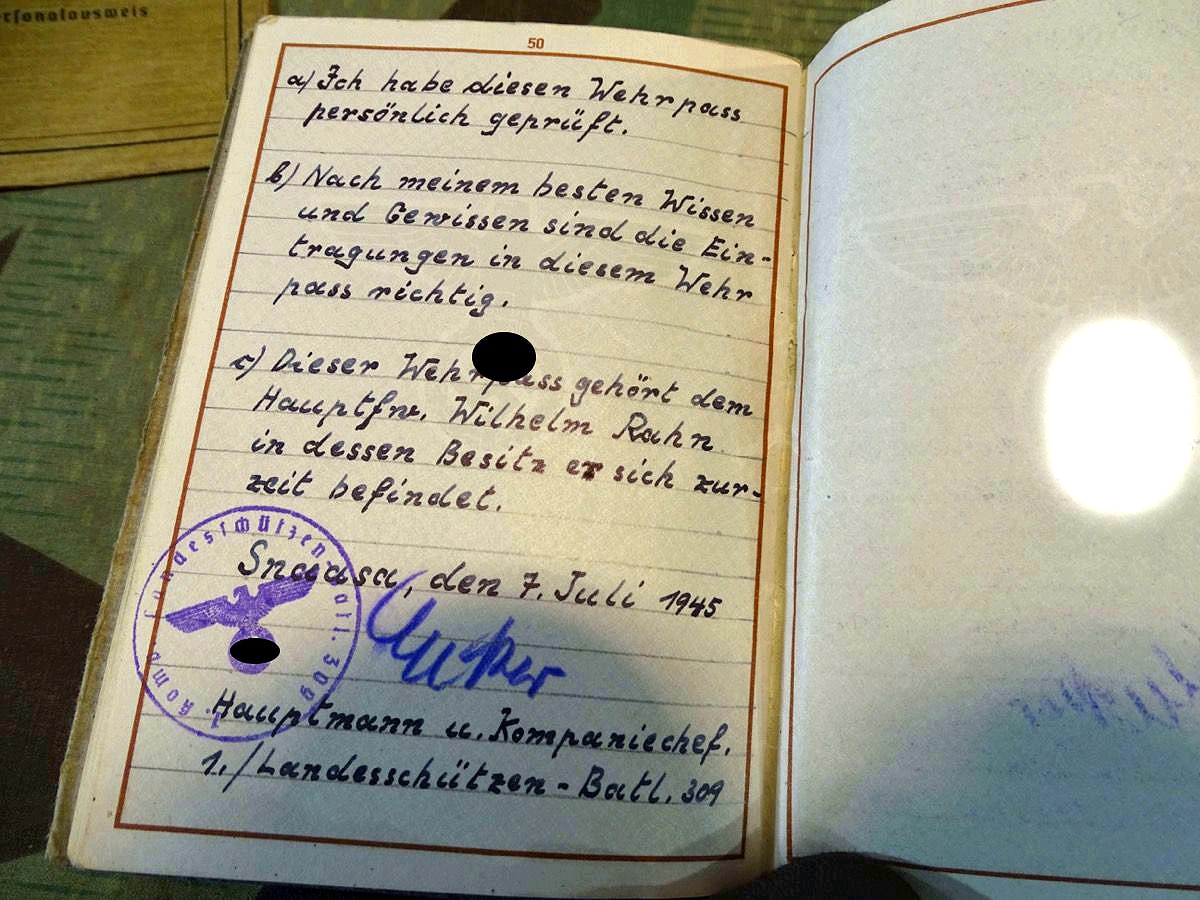 ersonalausweis
50
a) Ich habe diesen Wehrpass
persönlich geprüft.
b) Nach meinem besten Wissen
und Gewissen sind die Ein-
tragungen in diesem Wehr
pass richtig.
c) Dieser Wehrpass gehört dem
Hauptfw. Wilhelm Rahn
in dessen Besitz er sich zur-
zeit befindet.
Snaasa, den 7. Juli 1945
Hauptmann u. Kompaniechef.
1./Landesschützen-Batl. 309
1. Komp. Landesschützen Batl. 309